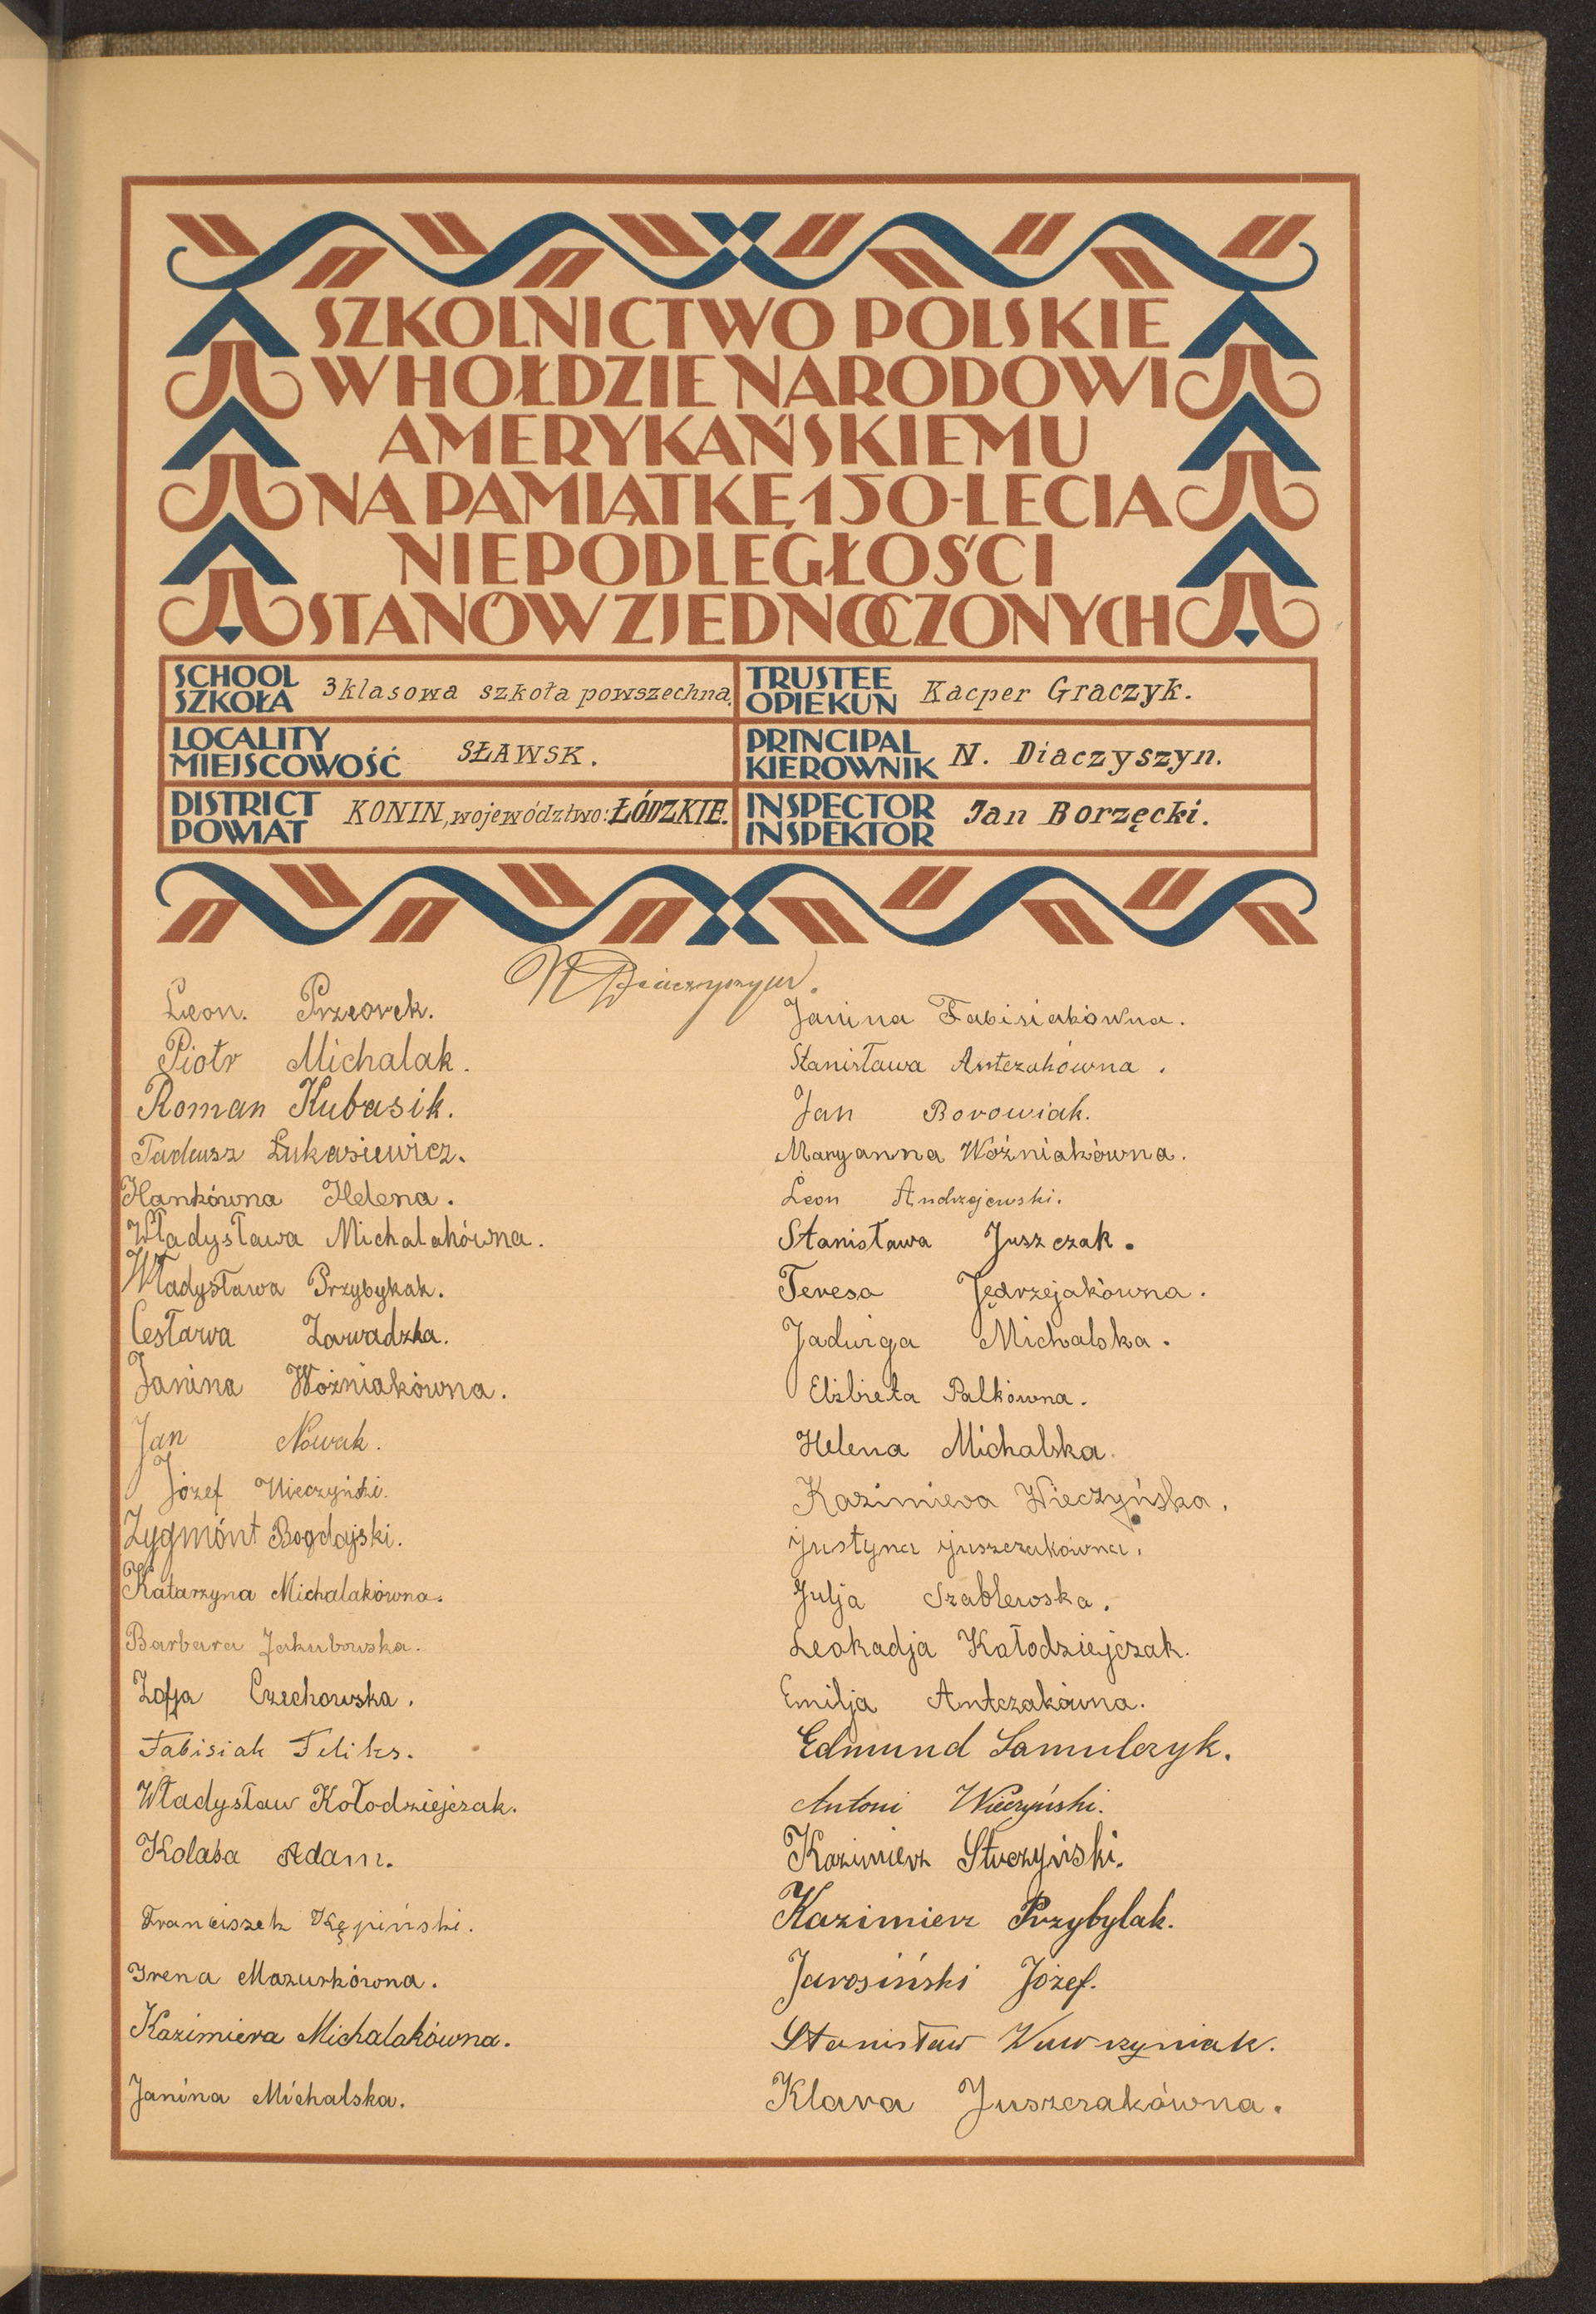 SZKOLNICTWO POLSKIE
W HOŁDZIE NARODOWI
AMERYKAŃSKIEMU
NA PAMIĄTKĘ 150-LECIA
NIEPODLEGŁOŚCI
STANÓW ZJEDNOCZONYCH
SCHOOL
SZKOŁA
3 klasowa szkoła powszechna.
TRUSTEE
OPIEKUN
Kacper Graczyk.
LOCALITY
MIEJSCOWOŚĆ
SŁAWSK.
PRINCIPAL
KIEROWNIK
N. Diaczyszyn.
DISTRICT
POWIAT
KONIN, województwo: ŁÓDZKIE.
INSPECTOR
INSPEKTOR
Jan Borzęcki.
N Diaczyszyn.
Leon. Przeorek.
Piotr Michalak.
Roman Kubasik.
Tadeusz Łukasiewicz.
Hankówna Helena.
Władysława Michalakówna.
Władysława Przybykak.
Cesława Zawadzka.
Janina Woźniakówna.
Jan Nowak.
Józef Wieczyński.
Zygmónt Bogdajski.
Katarzyna Michalakówna.
Barbara Jakubowska.
Zofja Czechowska.
Fabisiak Feliks.
Władysław Kołodziejczak.
Kolasa Adam.
Franciszek Kępiński.
Irena Mazurkówna.
Kazimiera Michalakówna.
Janina Michalska.
Janina Fabisiakówna.
Stanisława Antczakówna.
Jan Borowiak.
Maryanna Woźniakówna.
Leon Andrzejewski.
Stanisława Juszczak.
Teresa Jędrzejakówna.
Jadwiga Michalska.
Elżbieta Palkówna.
Helena Michalska.
Kazimiera Wieczyńska.
Justyna Juszczakówna.
Julja Szablewska.
Leokadja Kołodziejczak.
Emilja Antczakówna.
Edmund Samulczyk.
Antoni Wieczyński.
Kazimierz
Kazimierz Przybylak.
Jarosiński Józef.
Stanisław Wawrzyniak.
Klara Juszczakówna.